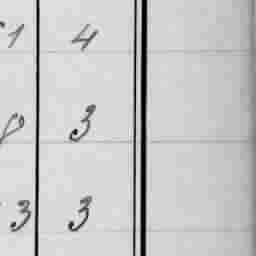 1 4
8 3
3 3